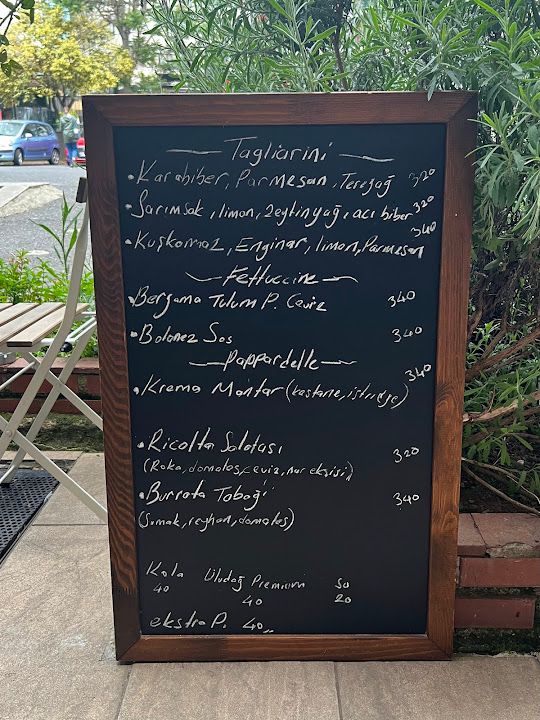 Tagliarini
• Karabiber, Parmesan, Tereyağ 320
• Sarımsak, limon, zeytinyağ, acı biber 320
• Kuşkonmaz, Enginar, limon, Parmesan 340
Fettuccine
• Bergama Tulum P. Ceviz 340
• Bolonez Sos 340
Pappardelle
• Krema Mantar (kestane, istiridye) 340
• Ricotta Salatası 320
(Roka, domates, ceviz, nar ekşisi)
• Burrata Tabağı 340
(Sumak, reyhan, domates)
Kola Uludağ Premium Su
40 40 20
ekstra P. 40